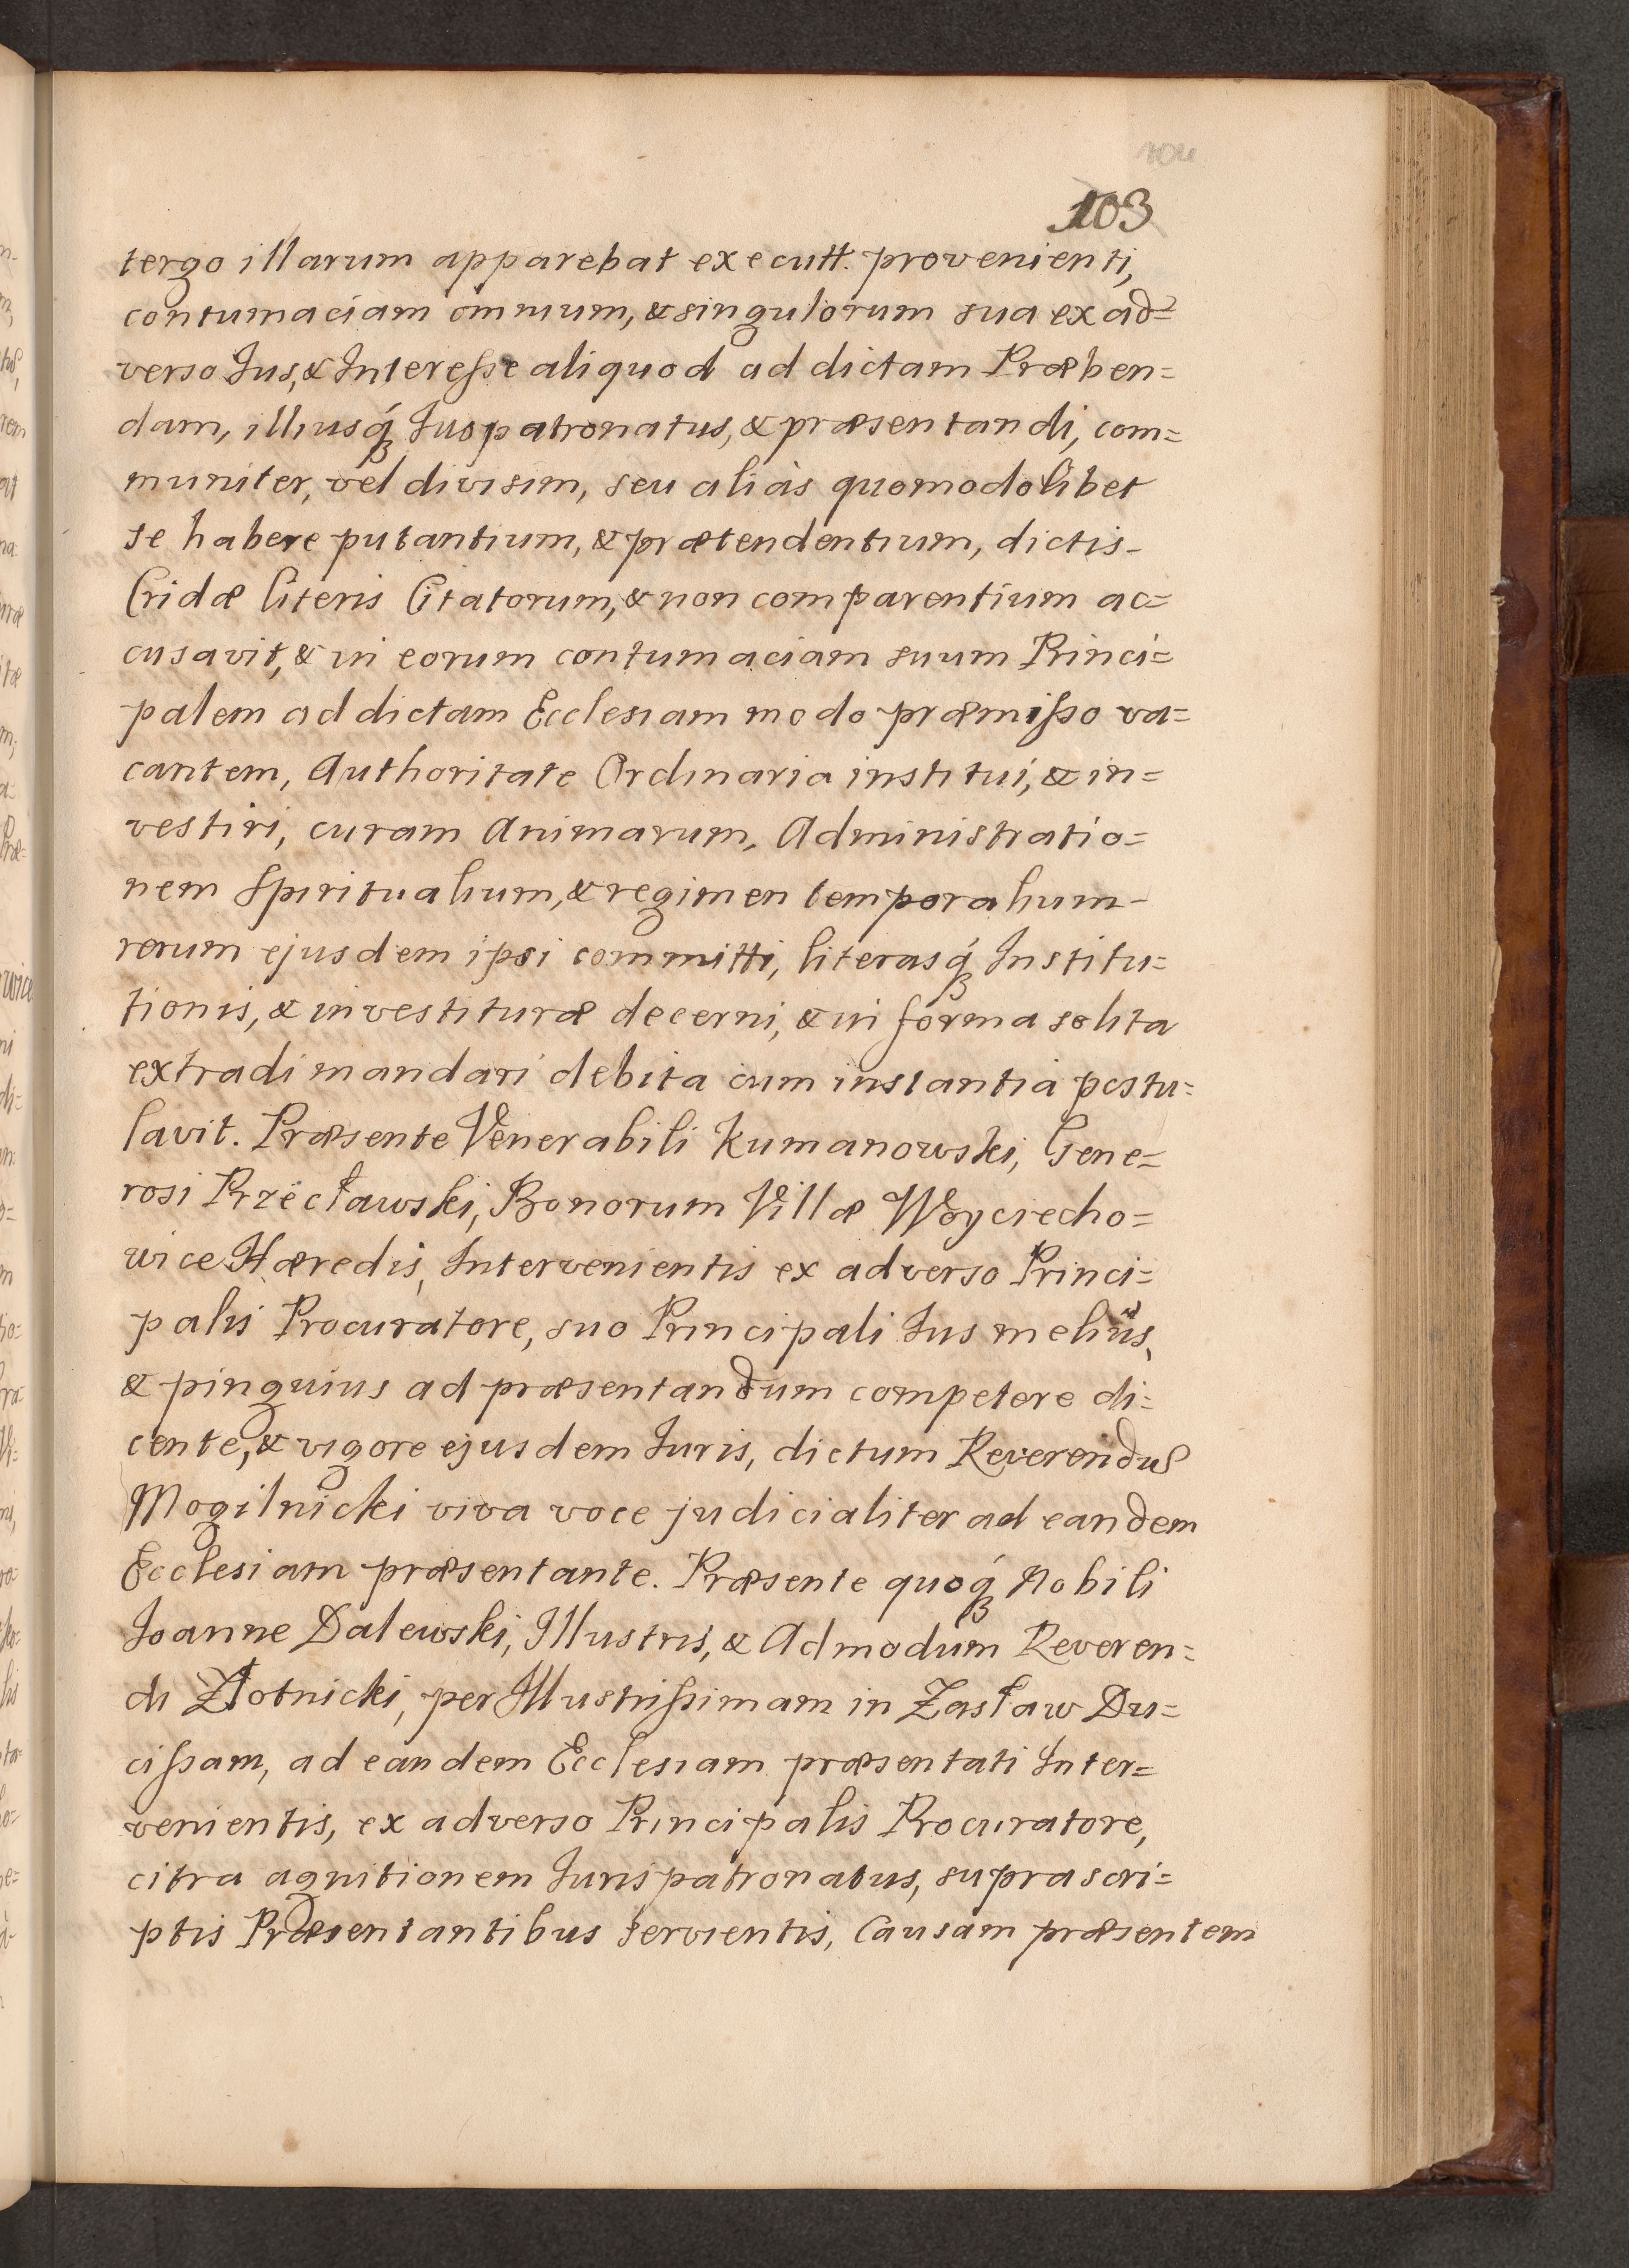 104
103
tergo illarum apparebat executt. provenienti,
contumaciam omnium, & singulorum sua ex ad=
verso Jus, & Interesse aliquod ad dictam Præben=
dam, illiusq́ Juspatronatus, & præsentandi, com=
muniter, vel divisim, seu aliàs quomodolibet
se habere putantium, & prætendentium, dictis
Cridæ literis Citatorum, & non comparentium ac=
cusavit, & in eorum contumaciam suum Princi=
palem ad dictam Ecclesiam modo præmisso va=
cantem, Authoritate Ordinaria institui, & in=
vestiri, curam Animarum, Administratio=
nem Spiritualium, & regimen temporalium
rerum ejusdem ipsi committi, literasq́ Institu=
tionis, & investituræ decerni, & in forma solita
extradi mandari debita cum instantia postu=
lavit. Præsente Venerabili Kumanowski, Gene=
rosi Przecławski, Bonorum Villæ Woyciecho=
wice Hæredis, Intervenientis ex adverso Princi=
palis Procuratore, suo Principali Jus meliùs,
& pinguius ad præsentandum competere di=
cente, & vigore ejusdem Juris, dictum Reverendus
Mogilnicki viva voce judicialiter ad eandem
Ecclesiam præsentante. Præsente quoq́ Nobili
Joanne Dalewski, Illustris, & Admodum Reveren=
di Złotnicki, per Illustrissimam in Zasław Du=
cissam, ad eandem Ecclesiam præsentati Inter=
venientis, ex adverso Principalis Procuratore,
citra agnitionem Jurispatronatus, suprascri=
ptis Præsentantibus servientis, Causam præsentem